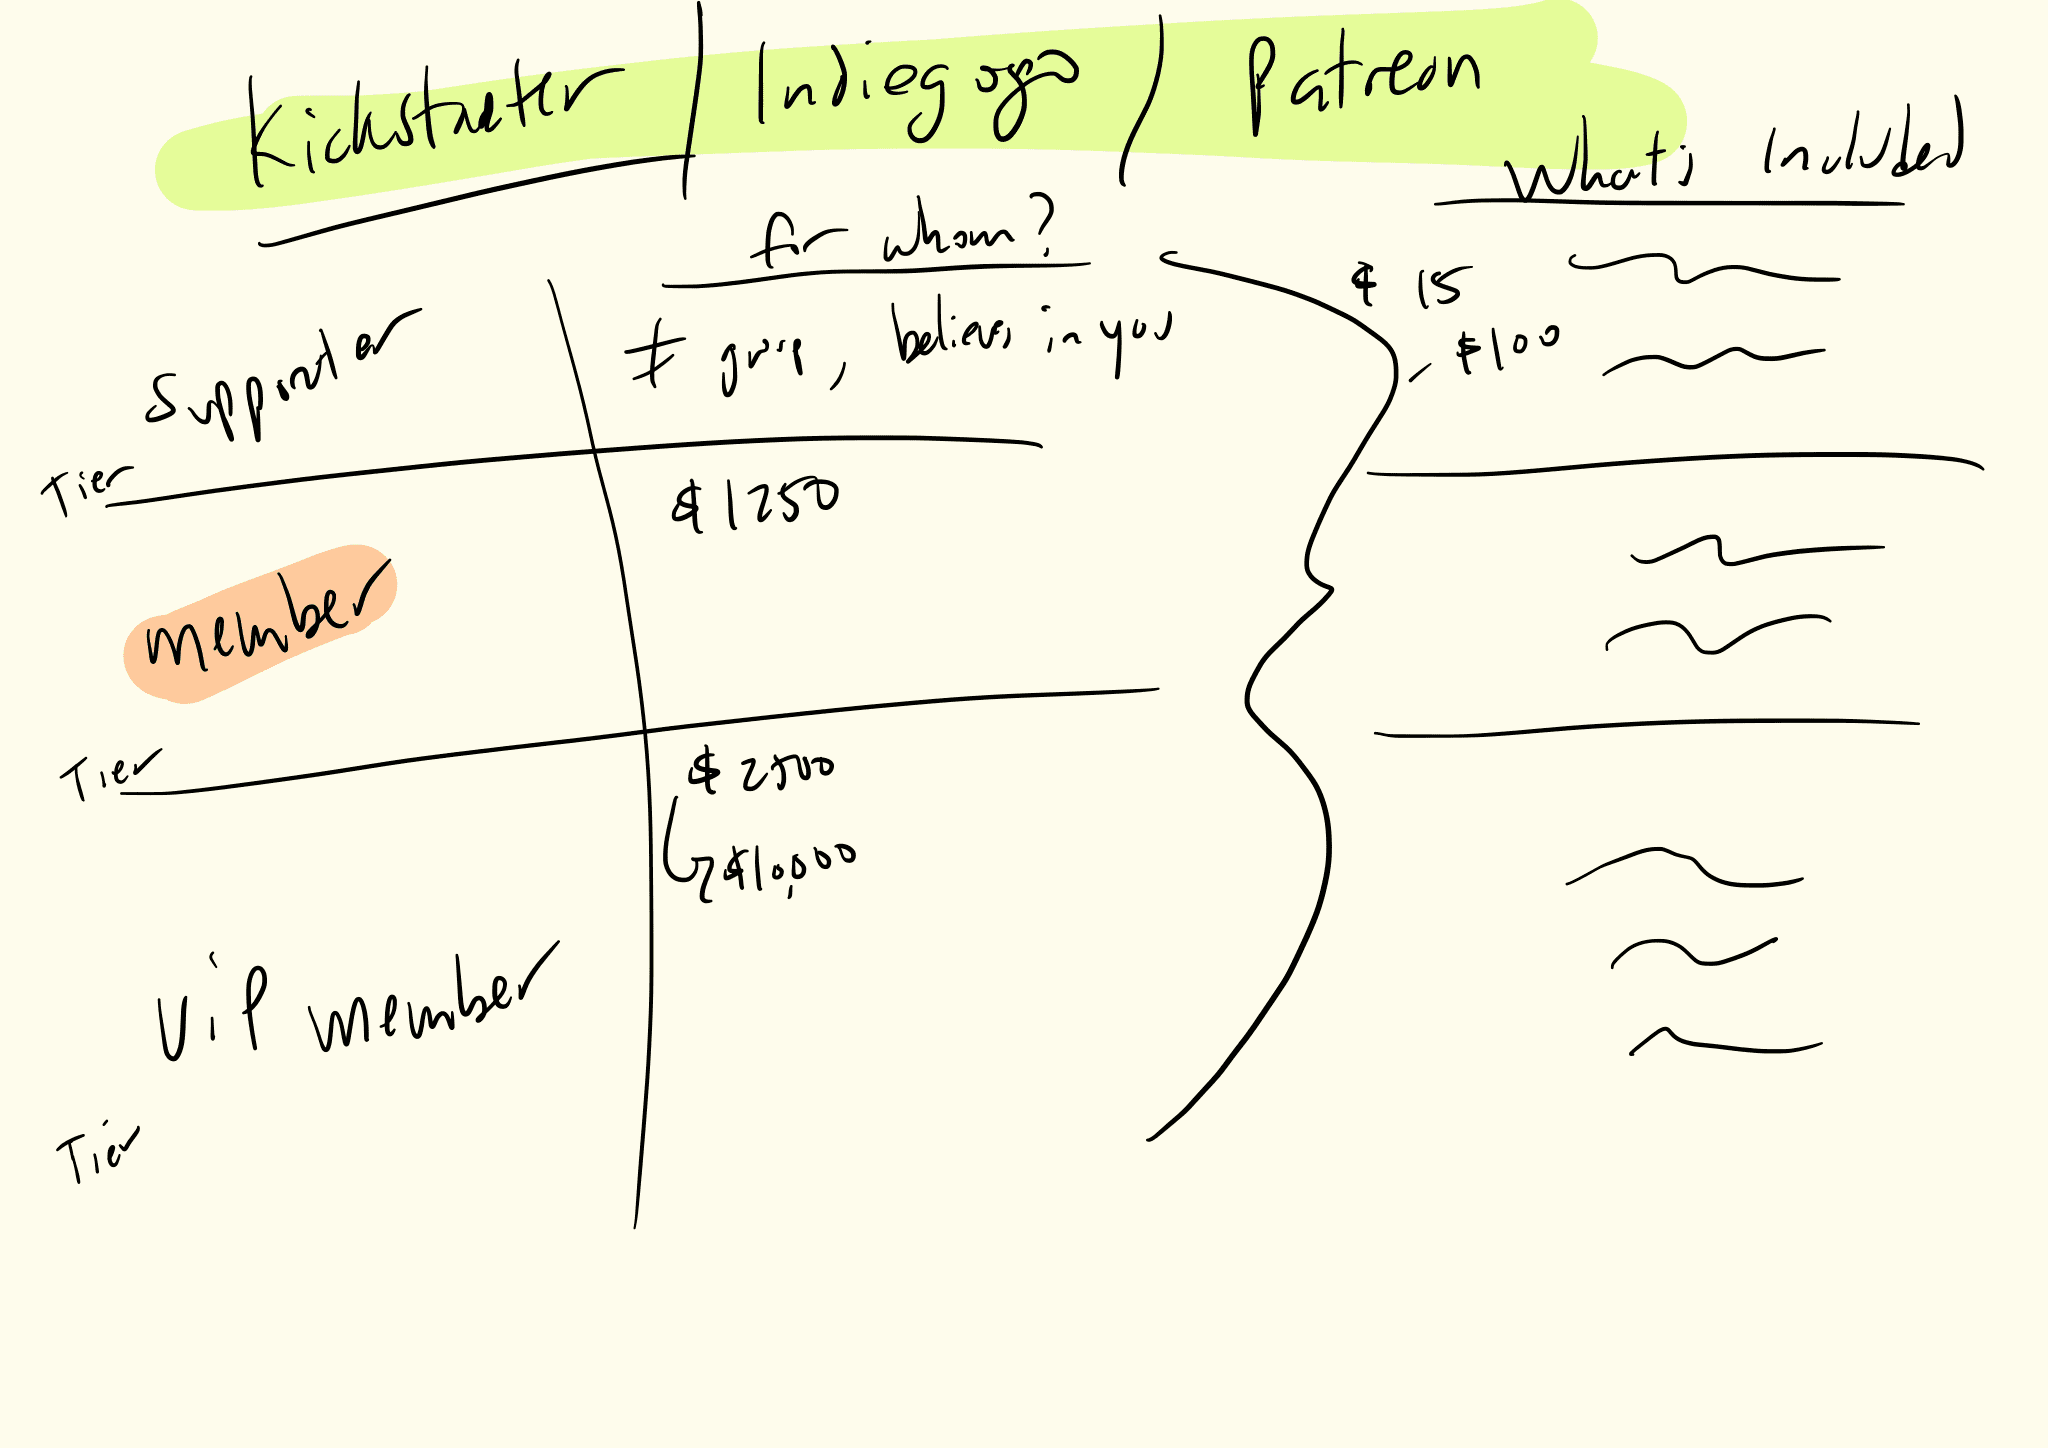 Kickstarter / Indiegogo / Patreon
What's Included
for whom?
$ 15
- $100
Supporter
≠ group, believes in you
Tier
$1250
member
Tier
$2500
$10,000
ViP member
Tier